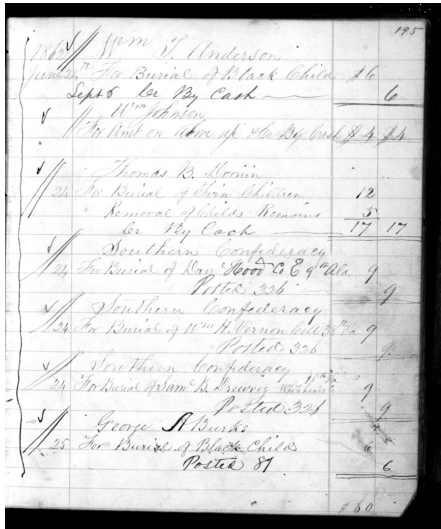 195
Wm T. Anderson
1862
June 24th For Burial of Black Child $6
Sept 8 Cr By Cash 6
Wm Johnson
For Amt on above a/c & Cr By Cash $4 $4
Thomas B.
24 For Burial of Children 12
Removal of Childs Remains 5
Cr By Cash 17 17
Southern Confederacy
24 For Burial of Dan Hood Co E 9th Ala 9
Posted 326 9
Southern Confederacy
24 For Burial of Wm H. Vernon Co 38th Va 9
Posted 326 9
Southern Confederacy
24 For Burial of Sam B. Drewry 9
Posted 326 9
George A Burks
25 For Burial of Black Child 6
Posted 87 6
$60